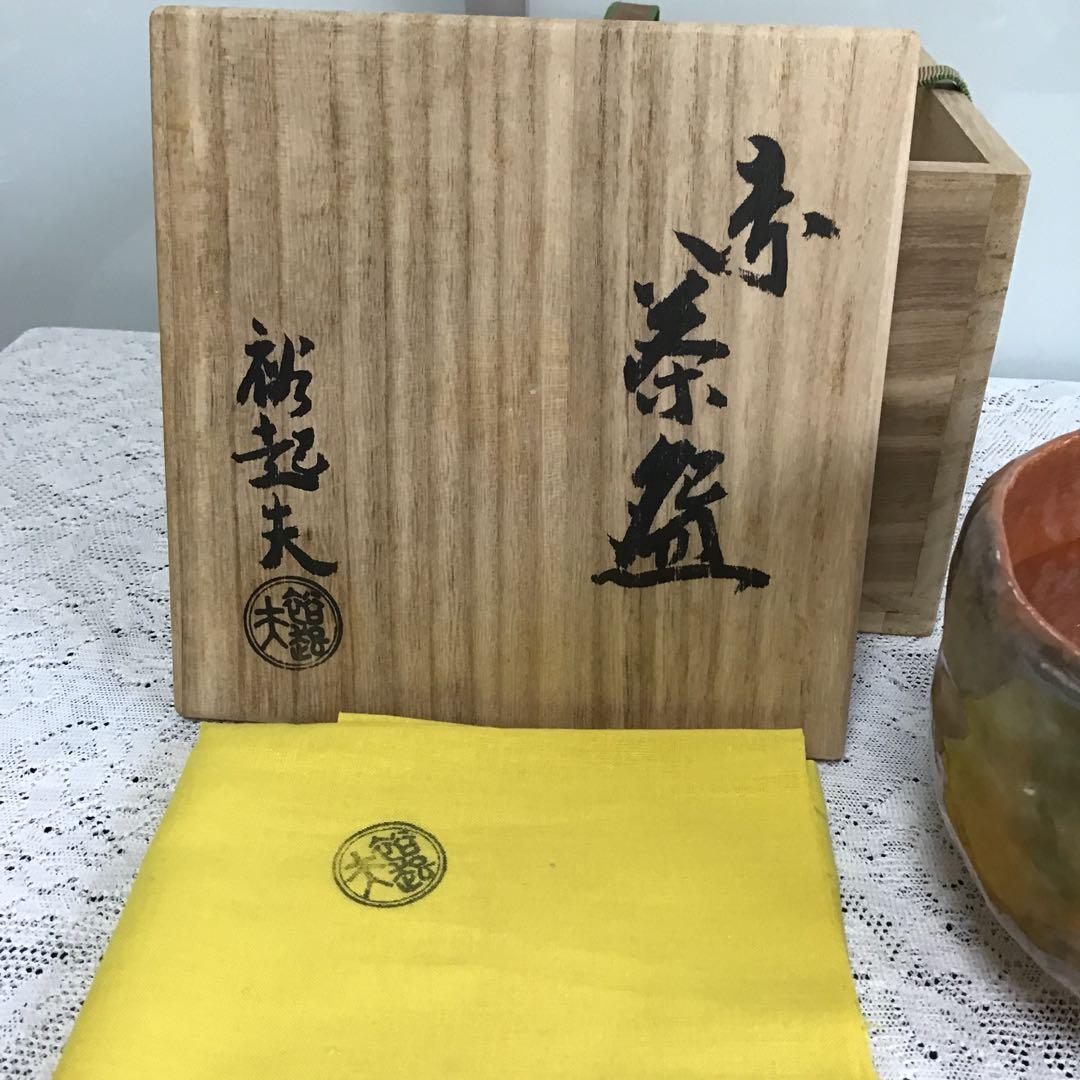 赤茶盌
裕起夫
裕起夫
裕起夫